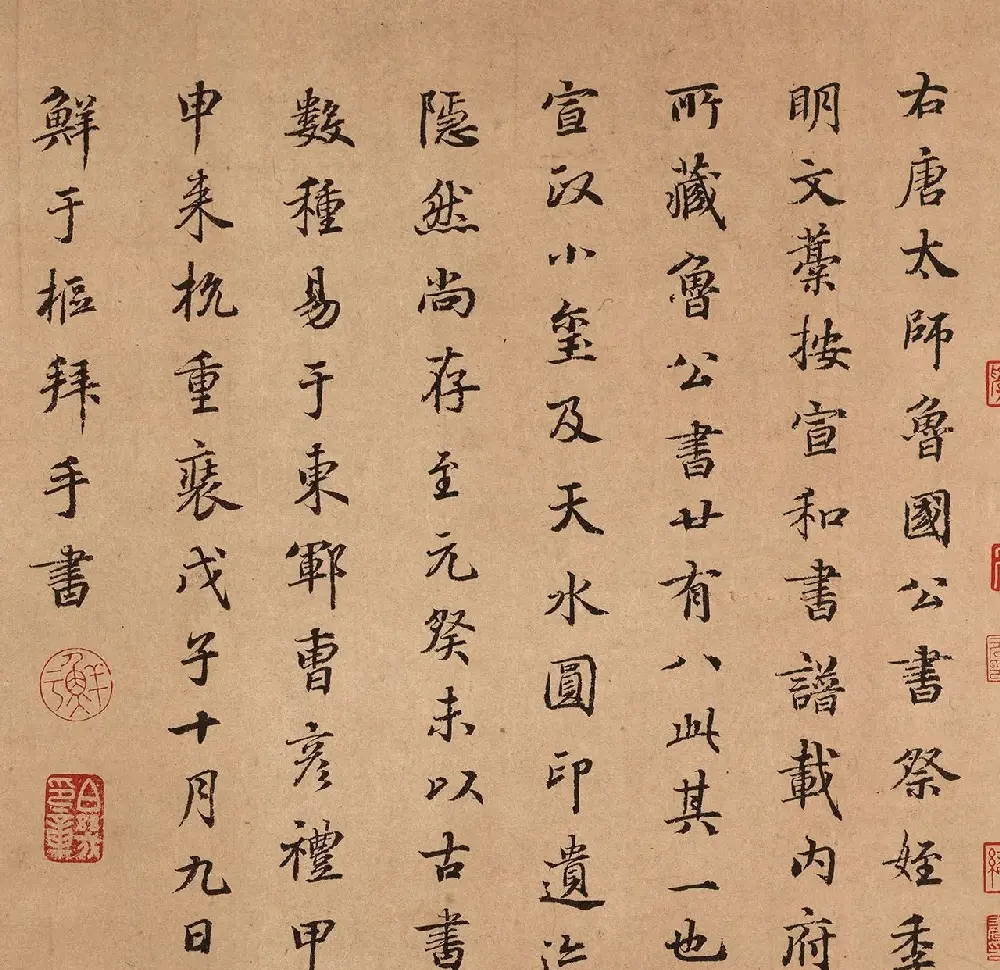 右唐太師魯國公書祭姪季
明文藁按宣和書譜載內府
所藏魯公書廿有八此其一也
宣政小璽及天水圓印遺迹
隱然尚存至元癸未以古書
數種易于東鄆曹彥禮甲
申来杭重裝戊子十月九日
鮮于樞拜手書
鮮于